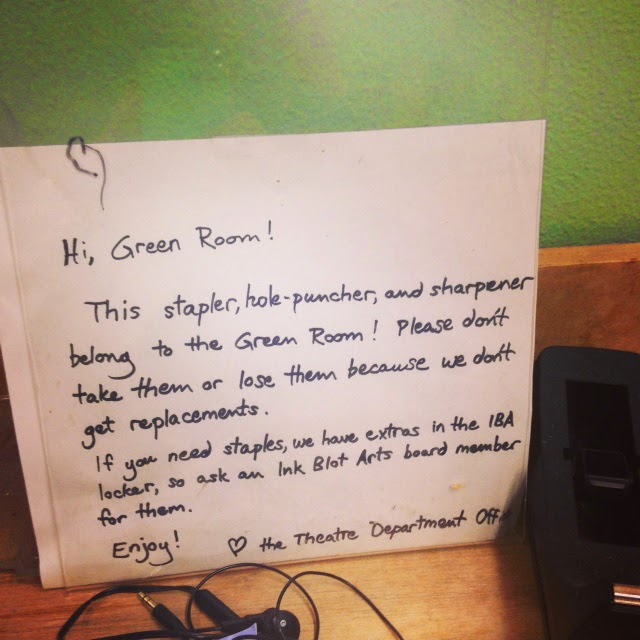 Hi, Green Room!
This stapler, hole-puncher, and sharpener
belong to the Green Room! Please don't
take them or lose them because we don't
get replacements.
If you need staples, we have extras in the IBA
locker, so ask an Ink Blot Arts board member
for them.
Enjoy! ♡ the Theatre Department